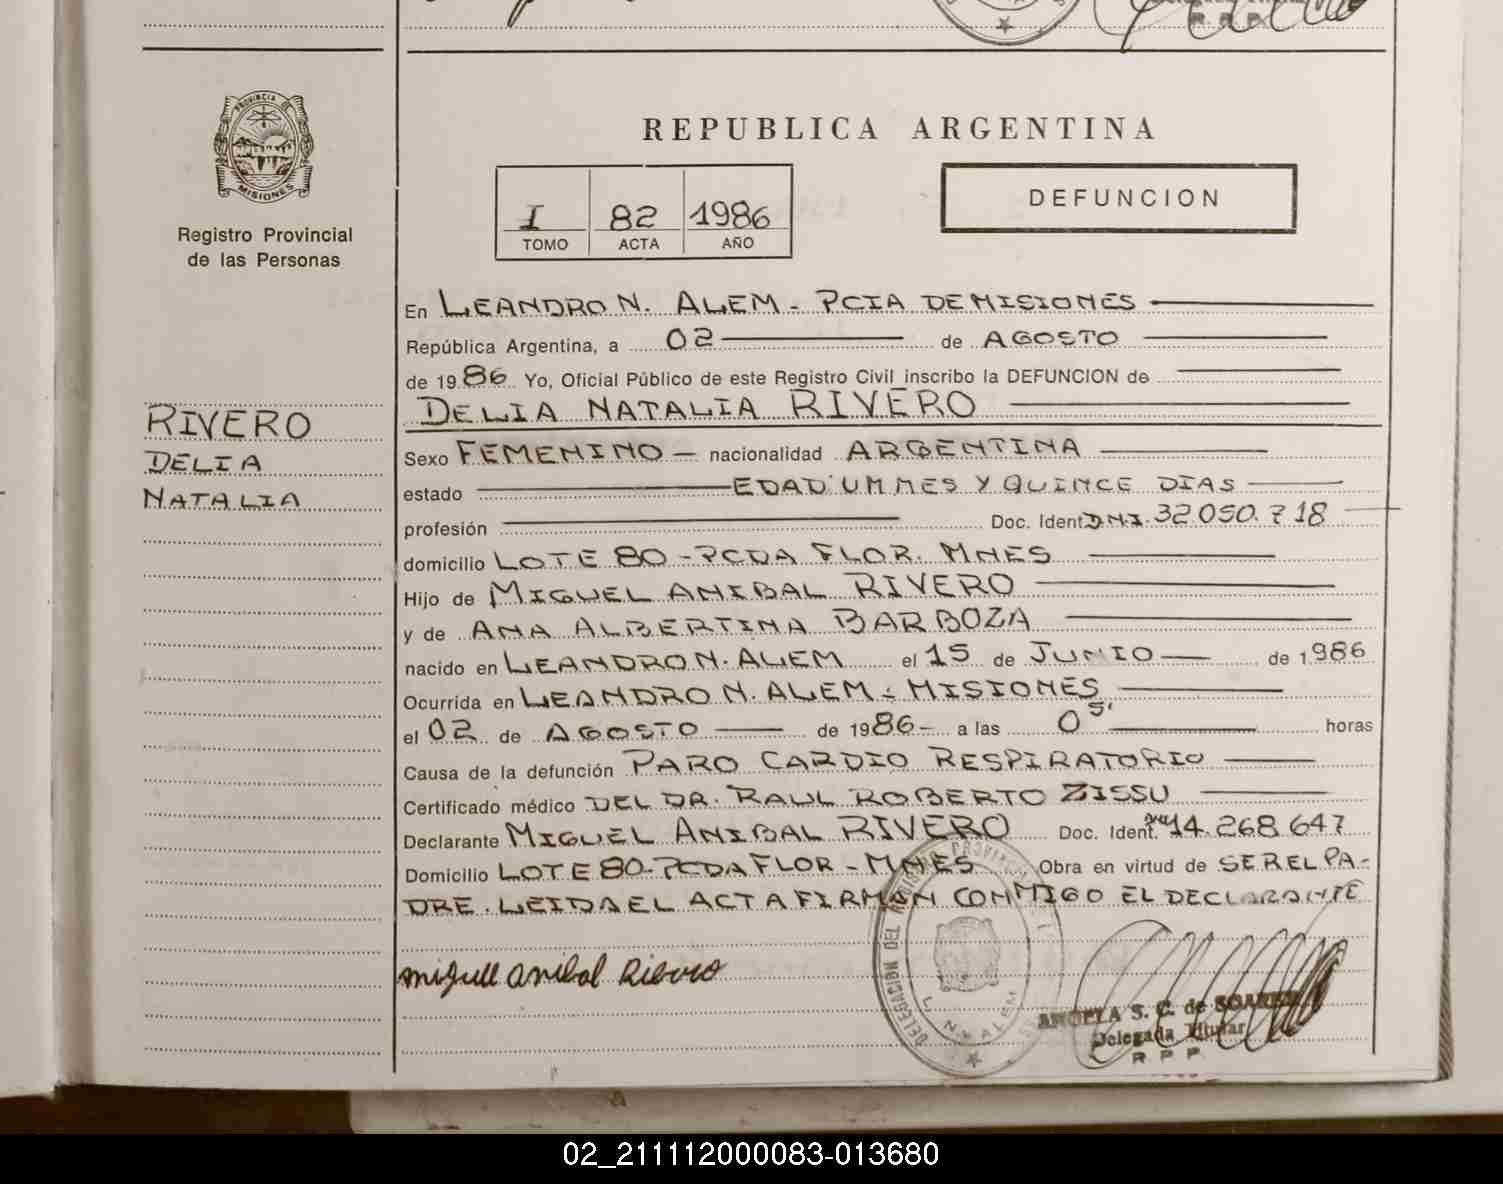 PROVINCIA DE
MISIONES
Registro Provincial
de las Personas
RIVERO
DELIA
NATALIA
REPUBLICA ARGENTINA
I 82 1986
TOMO ACTA AÑO
DEFUNCION
En LEANDRO N. ALEM - PCIA DE MISIONES
República Argentina, a 02 de AGOSTO
de 1986 Yo, Oficial Público de este Registro Civil inscribo la DEFUNCION de
DELIA NATALIA RIVERO
Sexo FEMENINO - nacionalidad ARGENTINA
estado EDAD: UN MES Y QUINCE DIAS
profesión Doc. Ident. D.N.I. 32.050.718
domicilio LOTE 80 - PCDA FLOR. MNES
Hijo de MIGUEL ANIBAL RIVERO
y de ANA ALBERTINA BARBOZA
nacido en LEANDRO N. ALEM el 15 de JUNIO de 1986
Ocurrida en LEANDRO N. ALEM - MISIONES
el 02 de AGOSTO de 1986 - a las 05' horas
Causa de la defunción PARO CARDIO RESPIRATORIO
Certificado médico DEL DR. RAUL ROBERTO ZISSU
Declarante MIGUEL ANIBAL RIVERO Doc. Ident. 14.268.647
Domicilio LOTE 80 - PCDA FLOR - MNES Obra en virtud de SER EL PA-
DRE. LEIDA EL ACTA FIRMAN CONMIGO EL DECLARANTE
Miguel Anibal Rivero
DELEGACION DEL REGISTRO PROVINCIAL
L. N. ALEM
ANGELA S. C. de SOAREZ
Delegada Titular
R P P
02_211112000083-013680